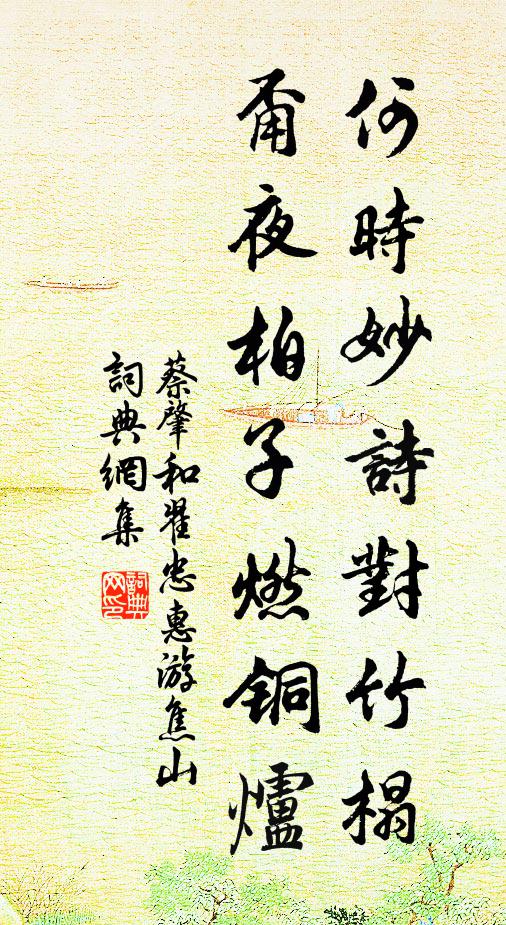 何時妙詩對竹榻
雨夜柏子燃铜爐
蔡肇和翟忠惠游焦山
詞典網集
詞典网印